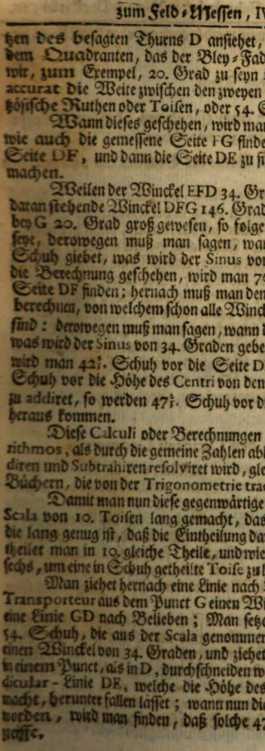 zum Feld-Messen, I
tzen des besagten Thurns D ansiehet,
dem Quadranten, das der Bley-Fad
wir, zum Exempel, 20. Grad zu seyn
accurat die Weite zwischen den zweyen
tzösische Ruthen oder Toisen, oder 54. S
Wann dieses geschehen, wird ma
wie auch die gemessene Seite FG finde
Seite DF, und dann die Seite DE zu f
machen.
Weilen der Winckel EFD 34. Gr
daran stehende Winckel DFG 146. Grad
bey G 20. Grad groß gewesen, so folge
seye, derowegen muß man sagen, wan
Schuh giebet, was wird der Sinus vor
die Berechnung geschehen, wird man 7
Seite DF finden; hernach muß man den
berechnen, von welchem schon alle Winck
sind: derowegen muß man sagen, wann
was wird der Sinus von 34. Graden gebe
wird man 42⅔. Schuh vor die Seite D
Schuh vor die Höhe des Centri von den
zu addiret, so werden 47⅔. Schuh vor d
heraus kommen.
Diese Calculi oder Berechnungen
rithmos, als durch die gemeine Zahlen abl
diren und Subtrahiren resolviret wird, gle
Büchern, die von der Trigonometrie tra
Damit man nun diese gegenwärtige
Scala von 10. Toisen lang gemacht, das
die lang genug ist, daß die Eintheilung da
theilet man in 10. gleiche Theile, und wie
sechs, um eine in Schuh getheilte Toise zu
Man ziehet hernach eine Linie nach
Transporteur aus dem Punct G einen Wi
eine Linie GD nach Belieben; Man setze
54. Schuh, die aus der Scala genomme
einen Winckel von 34. Graden, und ziehet
in einem Punct, als in D, durchschneiden w
dicular-Linie DE, welche die Höhe des
macht, herunter fallen lasset; wann nun die
worden, wird man finden, daß solche 47